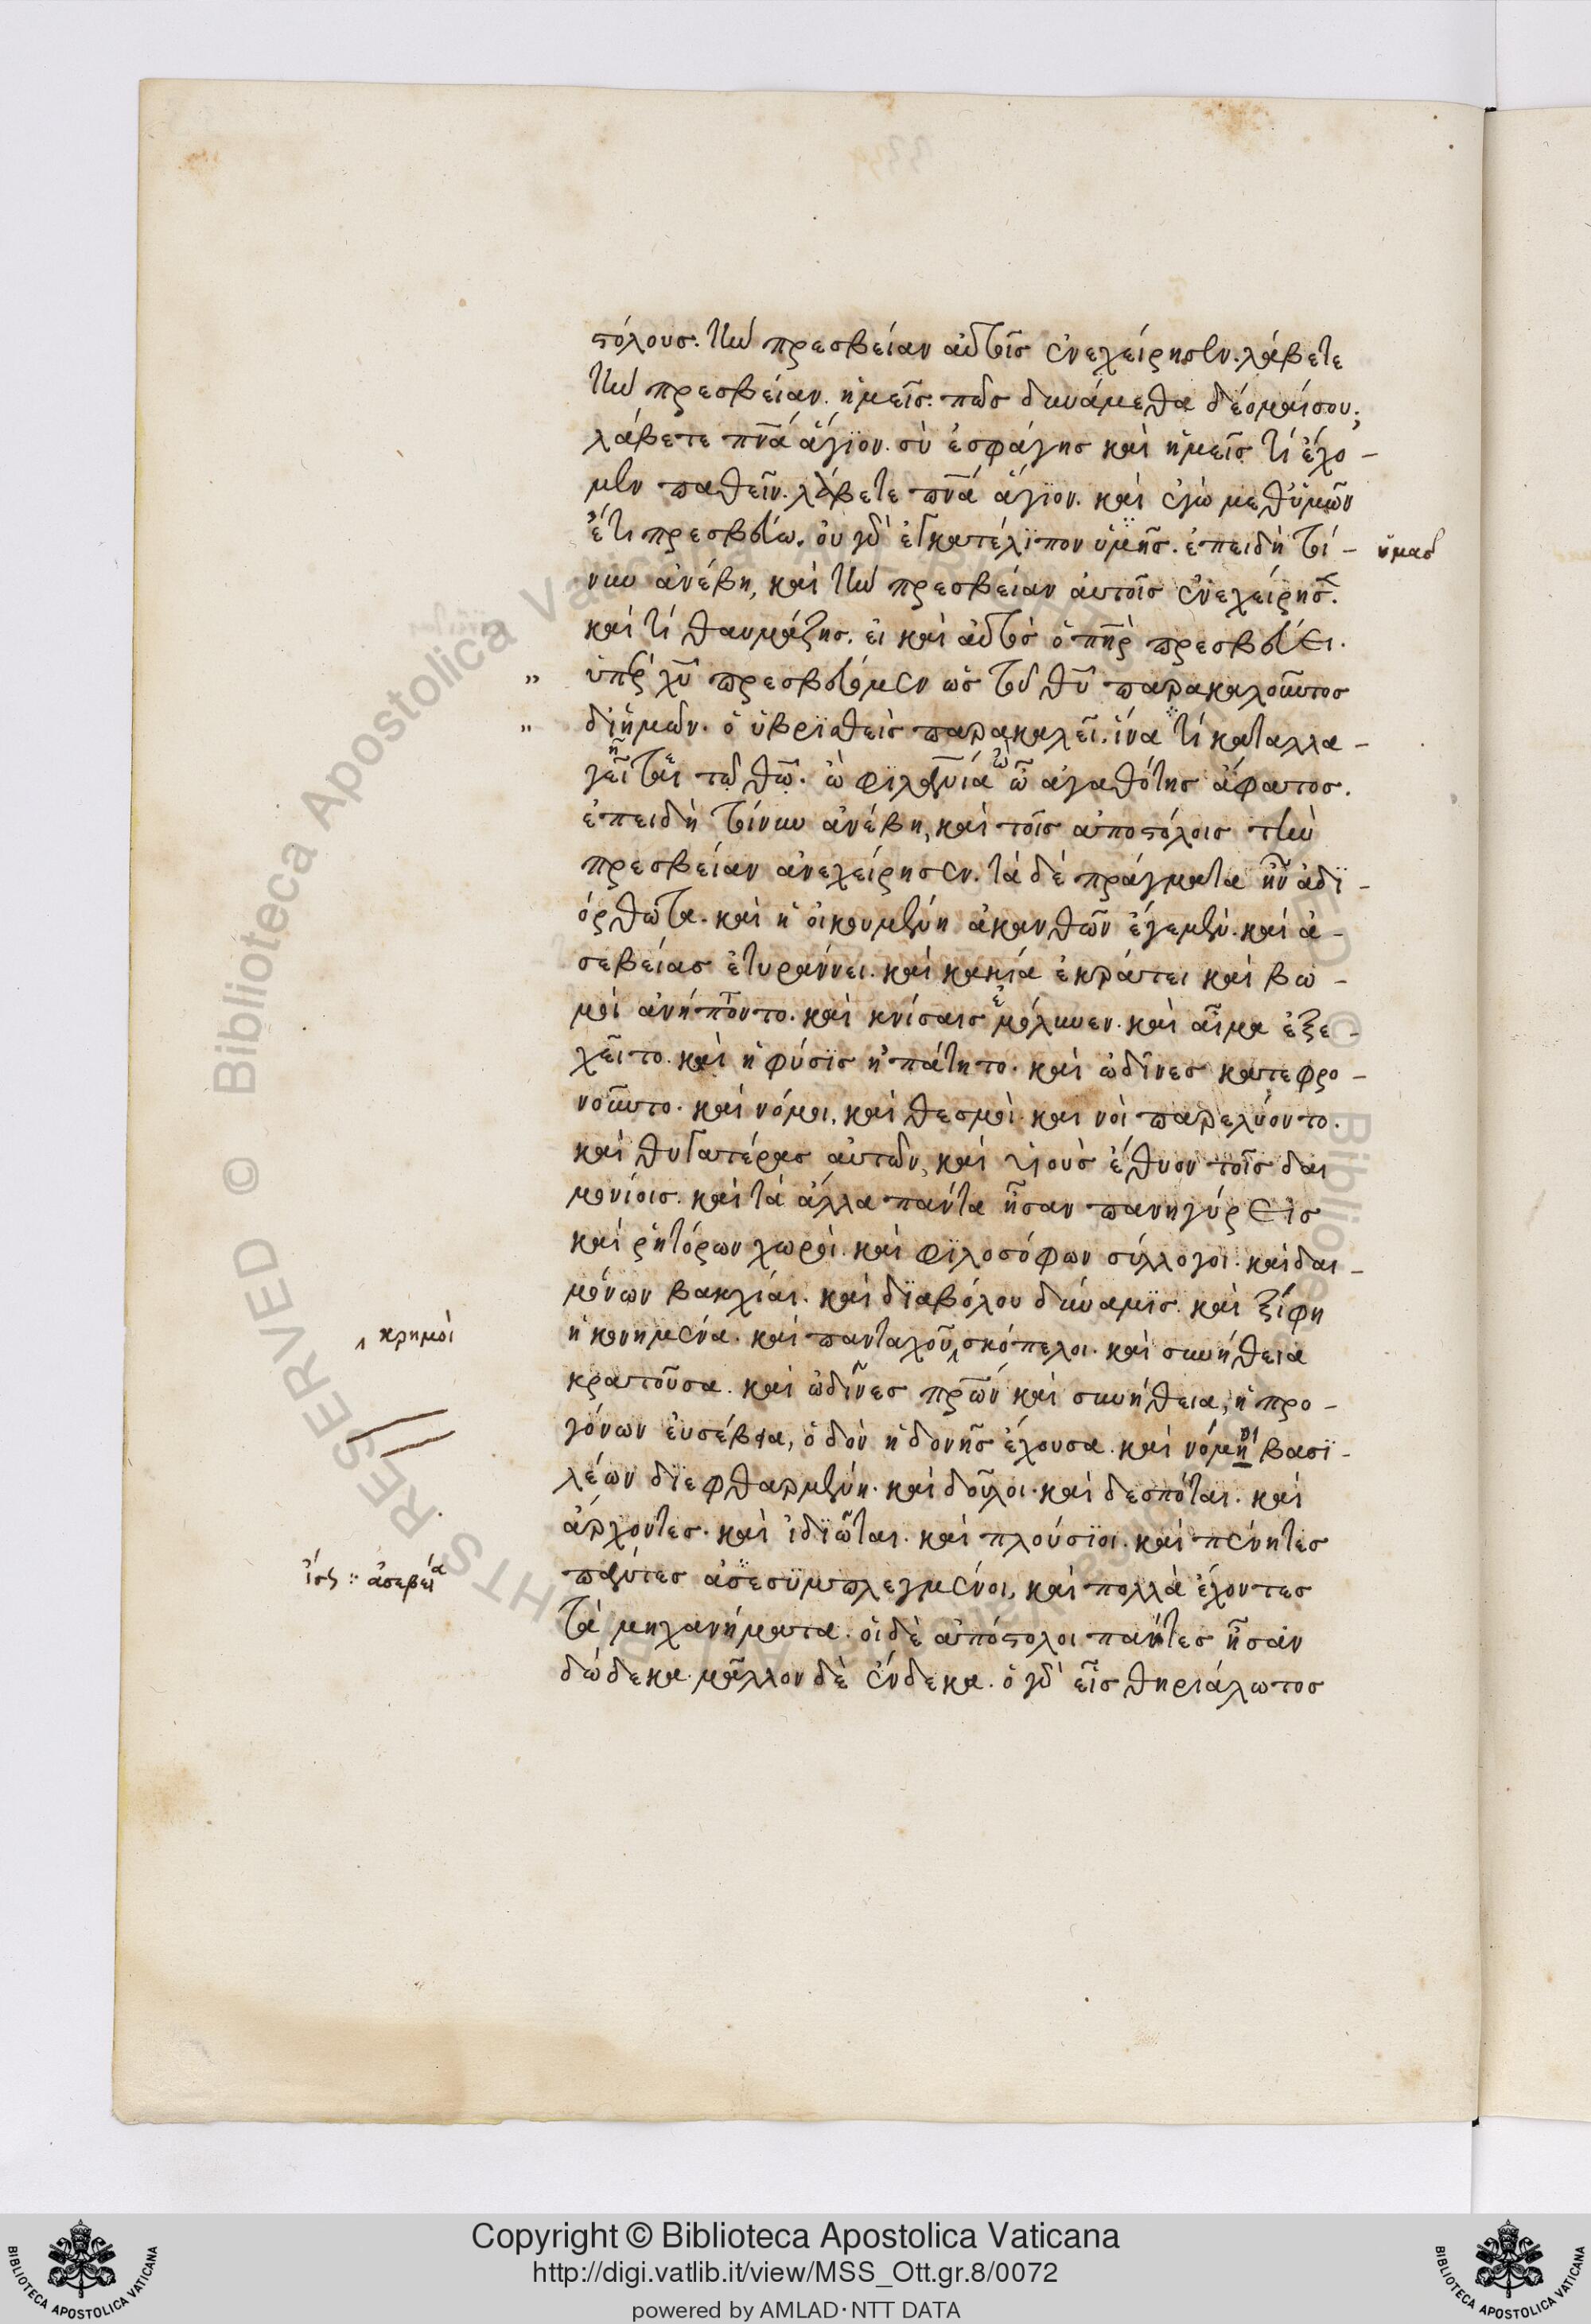 στόλους. τὴν πρεσβείαν αὐτοῖς ἐνεχείρησεν. λάβετε
τὴν πρεσβείαν. ἡμεῖς. πῶς δυνάμεθα δέομαί σου;
λάβετε πν̅ά ἅγϊον. σὺ ἐσφάγης καὶ ἡμεῖς τί ἔχο-
μεν παθεῖν. λάβετε πν̅ά ἅγϊον. καὶ ἐγὼ μεθ' ὑμῶν
ἔτι πρεσβεύω. οὐ γὰρ ἐγκατέλϊπον ὑμῆς. ἐπειδὴ τοί- ὑμας
νυν ἀνέβη, καὶ τὴν πρεσβείαν αὐτοῖς ἐνεχείρησ.
καὶ τί θαυμάζης. εἰ καὶ αὐτὸς ὁ πη̅ρ πρεσβεύει.
„ ὑπὲρ χυ̅ πρεσβεύομεν ὡς τοῦ θυ̅ παρακαλοῦντος
„ δι' ἡμῶν. ὁ ὑβρϊσθεὶς παρακαλεῖ. ἵνα τί καταλλα-
γεῖται τῷ θω̅. ὢ φϊλανίά ὢ ἀγαθότης ἄφατος.
ἐπειδὴ τοίνυν ἀνέβη, καὶ τοῖς ἀποστόλοις τὴν
πρεσβείαν ἀνεχείρησεν. τὰ δὲ πράγματα ἦν ἀδϊ-
όρθωτα. καὶ ἡ οἰκουμένη ἀκανθῶν ἔγεμεν. καὶ ἀ-
σεβείας ἐτυράννει. καὶ κακία ἐκράτει καὶ βω-
μοὶ ἀνήπτοντο. καὶ κνίσαις ἐμόλυνεν. καὶ αἷμα ἐξε-
χεῖτο. καὶ ἡ φύσϊς ἠπάτητο. καὶ ὠδῖνες κατεφρο-
νοῦντο. καὶ νόμοι. καὶ θεσμοὶ. και νοι παρελύοντο.
καὶ θυγατέρας αὐτῶν, καὶ υἱοὺς ἔθυον τοῖς δαι
μονίοις. καὶ τὰ ἄλλα πάντα ἦσαν πανηγύρεις
καὶ ῥητόρων χωροὶ. καὶ φϊλοσόφων σύλλογοι. καὶ δαι-
μόνων βακχίαι. καὶ δϊαβόλου δύναμϊς. καὶ ξίφη
κρημοὶ ἠκονημένα. καὶ πανταχοῦ σκόπελοι. καὶ συνήθεια
κρατοῦσα. καὶ ὠδῖνες πρ̅ων καὶ συνήθεια, ἡ προ-
γόνων εὐσέβεια, ὁδὸν ἡδονῆς ἔχουσα. καὶ νόμη βασϊ-
λέων δϊεφθαρμένη. καὶ δοῦλοι. καὶ δεσπόται. καὶ
ἄρχοντες. καὶ ἰδϊῶται. καὶ πλούσϊοι. καὶ πένητες
ἴσ :: ἀσεβείᾳ πάντες ἀσεσϋμπλεγμένοι, καὶ πολλὰ ἔχοντες
τὰ μηχανήματα. οἱ δὲ ἀπόστολοι πάντες ἦσαν
δώδεκα. μᾶλλον δὲ ἕνδεκα. ὁ γὰρ εἷς θηριάλωτος
Copyright © Biblioteca Apostolica Vaticana
http://digi.vatlib.it/view/MSS_Ott.gr.8/0072
powered by AMLAD·NTT DATA
BIBLIOTECA APOSTOLICA VATICANA
BIBLIOTECA APOSTOLICA VATICANA